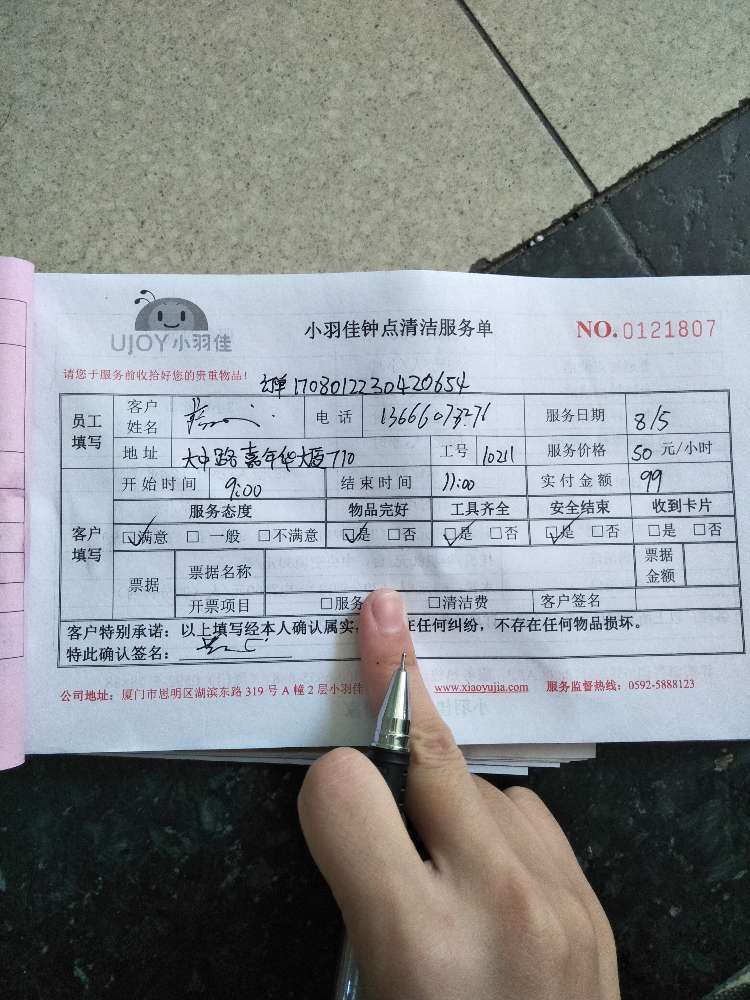 UJOY小羽佳
小羽佳钟点清洁服务单
NO.0121807
请您于服务前收拾好您的贵重物品！
订单1708012230420654
员工填写 客户姓名 电话 13666073276 服务日期 8/5
地址 大中路嘉年华大厦710 工号 10211 服务价格 50 元/小时
客户填写 开始时间 9:00 结束时间 11:00 实付金额 99
服务态度 物品完好 工具齐全 安全结束 收到卡片
☑满意 □ 一般 □不满意 ☑是 □否 ☑是 □否 ☑是 □否 □是 □否
票据 票据名称 票据金额
开票项目 □服务 □清洁费 客户签名
客户特别承诺：以上填写经本人确认属实, 在任何纠纷，不存在任何物品损坏。
特此确认签名：
公司地址：厦门市思明区湖滨东路 319 号 A 幢 2 层小羽佳 www.xiaoyujia.com 服务监督热线：0592-5888123